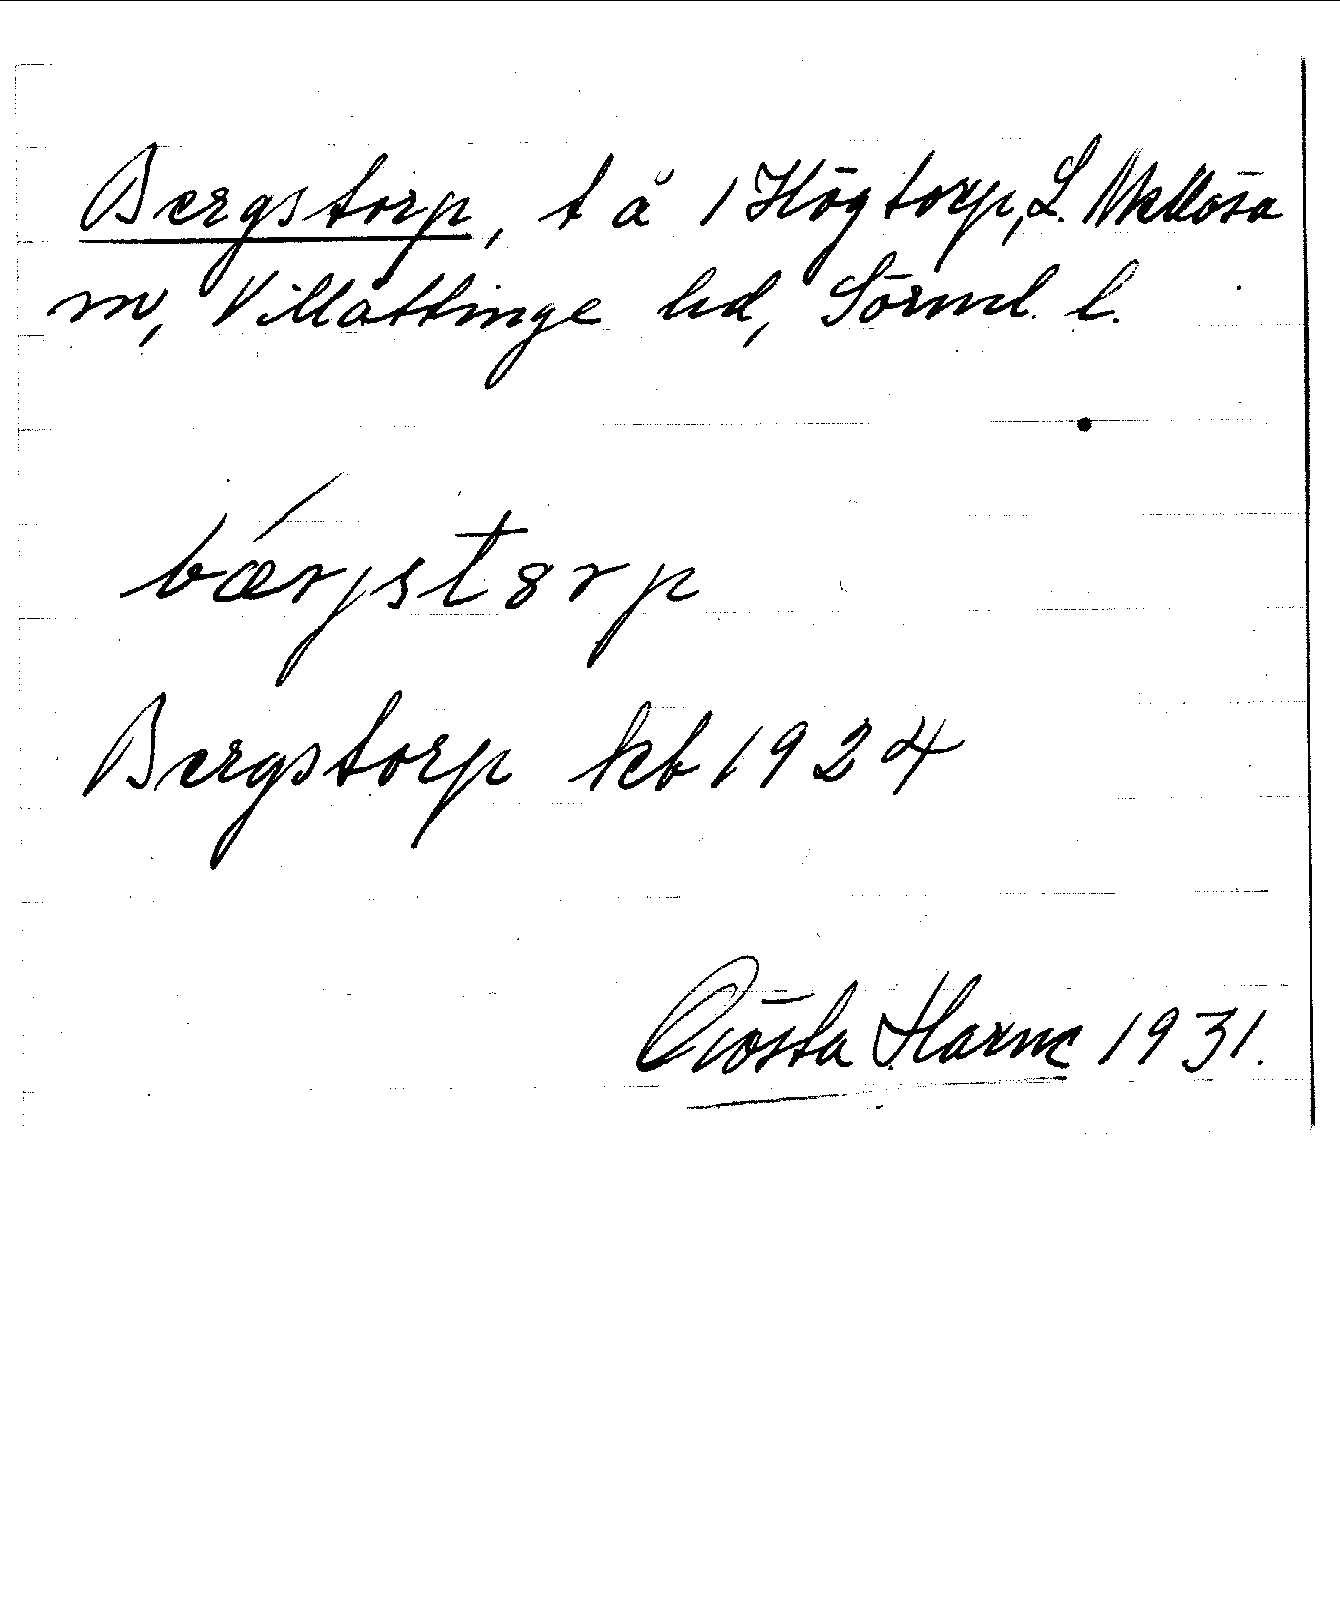 Bergstorp, t å 1 Högtorp, L. Mellösa
sn, Villåttinge hd, Sörml. l.
bærjstorp
Bergstorp kb 1924
Gösta Harne 1931.